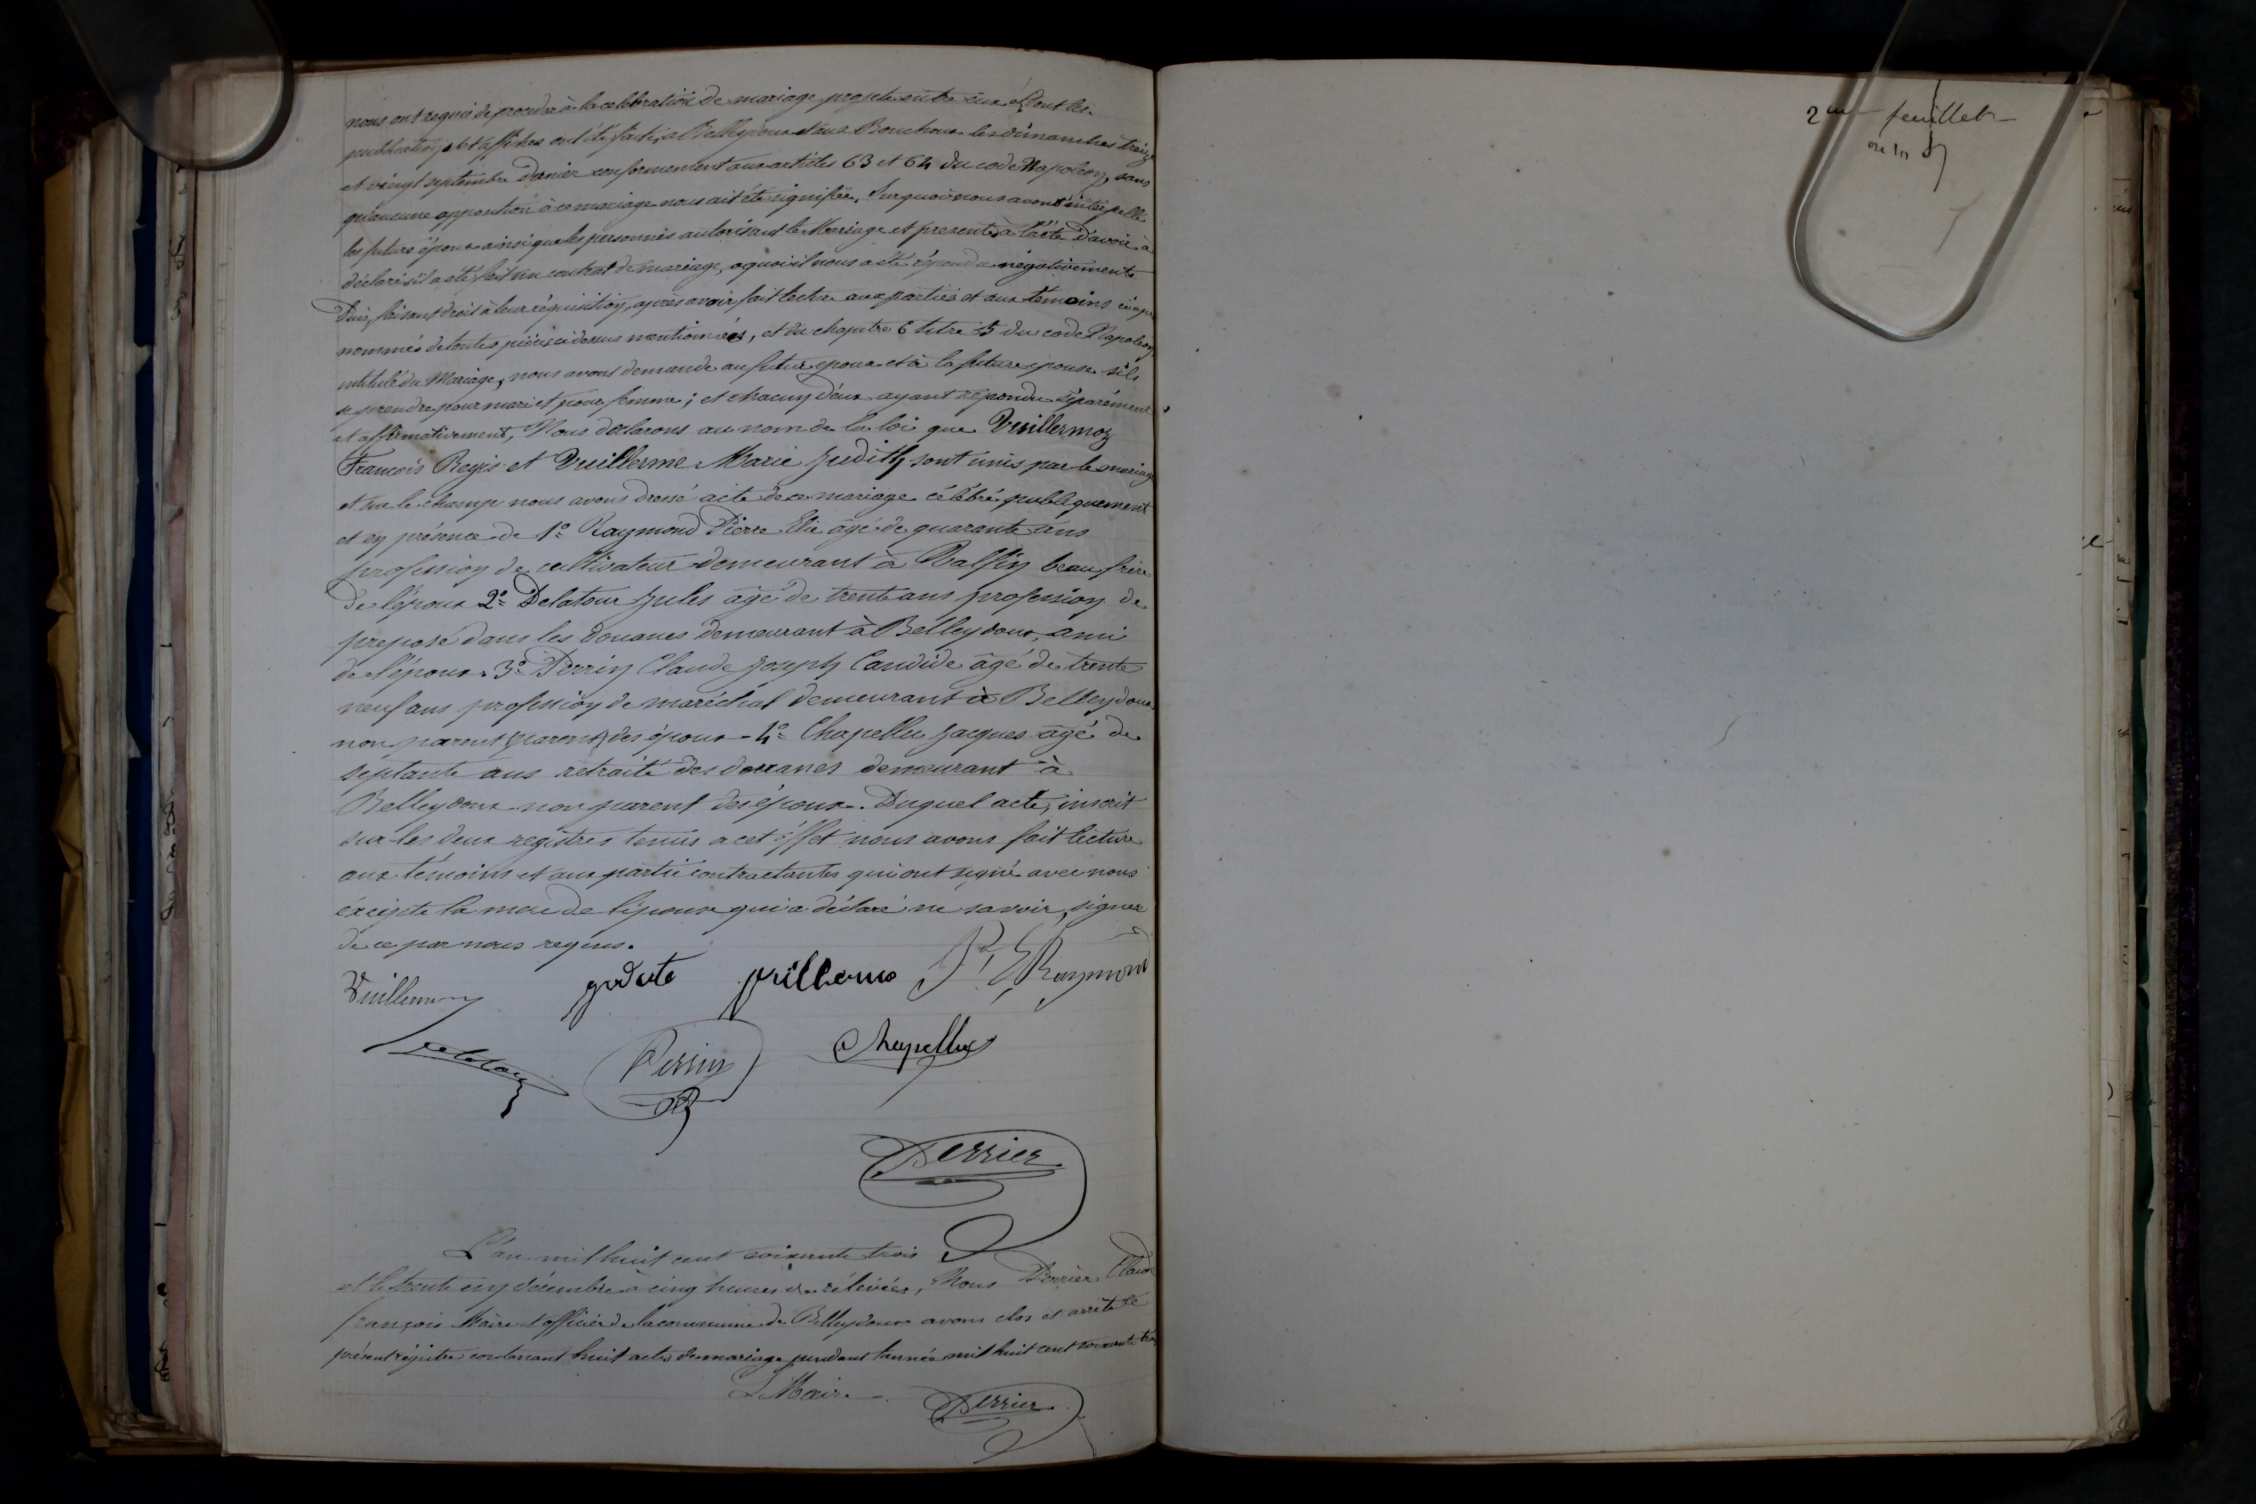 nous ont requis de procéder à la celebration de mariage projeté entre eux et dont les
publications et affiches ont été faites à Belleydoux et aux Bouchoux les dimanches treize
et vingt septembre dernier conformement aux articles 63 et 64 du code Napoleon, sans
qu'aucune opposition à ce mariage nous ait été signifiée, Sur quoi nous avons interpellé
les futurs époux ainsi que les personnes autorisant le Mariage et presentes à l'acte d'avoir à
déclarer s'il a été fait un contrat de mariage, a quoi il nous a été répondu négativement
Puis, faisant droit à leur réquisition, après avoir fait lecture aux parties et aux témoins ci après
nommés de toutes pièces ci dessus mentionnées, et du chapitre 6 titre 5 du code Napoleon
intitulé du Mariage, nous avons demandé au futur epoux et à la future epouse s'ils
se prendre pour mari et pour femme ; et chacun d'eux ayant repondu séparément
et affirmativement, Nous declarons au nom de la loi que Vuillermoz
François Regis et Vuillerme Marie Judith sont unis par le mariage
et sur le champ nous avons dressé acte de ce mariage célébré publiquement
et en présence de 1° Raymond Pierre Elie âgé de quarante ans
profession de cultivateur demeurant à Valfin beau frère
de l'époux 2° Delatour Jules âgé de trente ans profession de
preposé dans les douanes demeurant à Belleydoux, ami
de l'époux 3° Perrin Claude Joseph Candide âgé de trente
neuf ans profession de maréchal demeurant à Belleydoux
non parent des époux - 4° Chapellu Jacques âgé de
septante ans retraité des douanes demeurant à
Belleydoux non parent des époux. Duquel acte, inscrit
sur les deux registres tenus a cet éffet nous avons fait lecture
aux témoins et aux partie contractantes qui ont signé avec nous
éxcepte la mere de l'épouse qui a déclaré ne savoir signer
de ce par nous requis.
Vuillermoz Judute Vuillerme P E Raymond
Delatour Perrin Chapellu
Perrier
L'an mil huit cent soixante trois
et le trente un décembre à cinq heures de rélévée, Nous Perrier Claude
françois Maire et officier de la commune de Belleydoux avons clos et arrêté le
présent régistre contenant huit actes de mariage pendant l'année mil huit cent soixante trois
L Maire
Perrier
2me feuillet